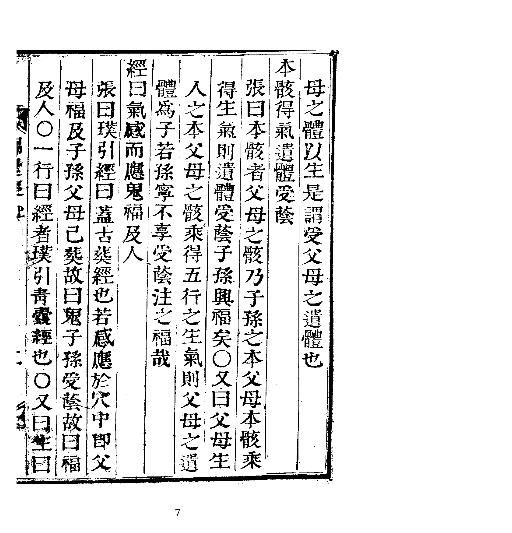 母之體以生是謂受父母之遺體也
本骸得氣遺體受蔭
張曰本骸者父母之骸乃子孫之本父母本骸乘
得生氣則遺體受蔭子孫興福矣〇又曰父母生
人之本父母之骸乘得五行之生氣則父母之遺
體為子若孫寧不享受蔭注之福哉
經曰氣感而應鬼福及人
張曰璞引經曰蓋古葬經也若感應於穴中即父
母福及子孫父母已葬故曰鬼子孫受蔭故曰福
及人〇一行曰經者璞引青囊經也〇又曰生曰
7